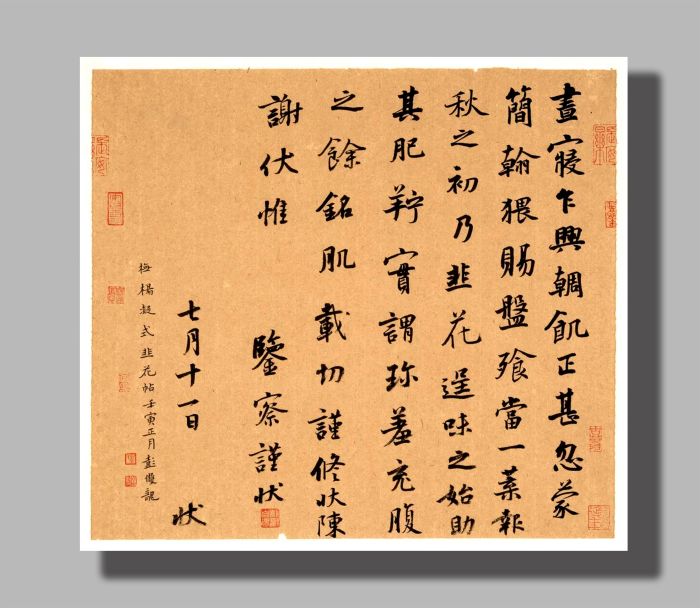 晝寢乍興輖飢正甚忽蒙
簡翰猥賜盤飧當一葉報
秋之初乃韭花逞味之始助
其肥羜實謂珍羞充腹
之餘銘肌載切謹修狀陳
謝伏惟 鑒察謹狀
七月十一日 狀
楊凝式韭花帖壬寅正月彭